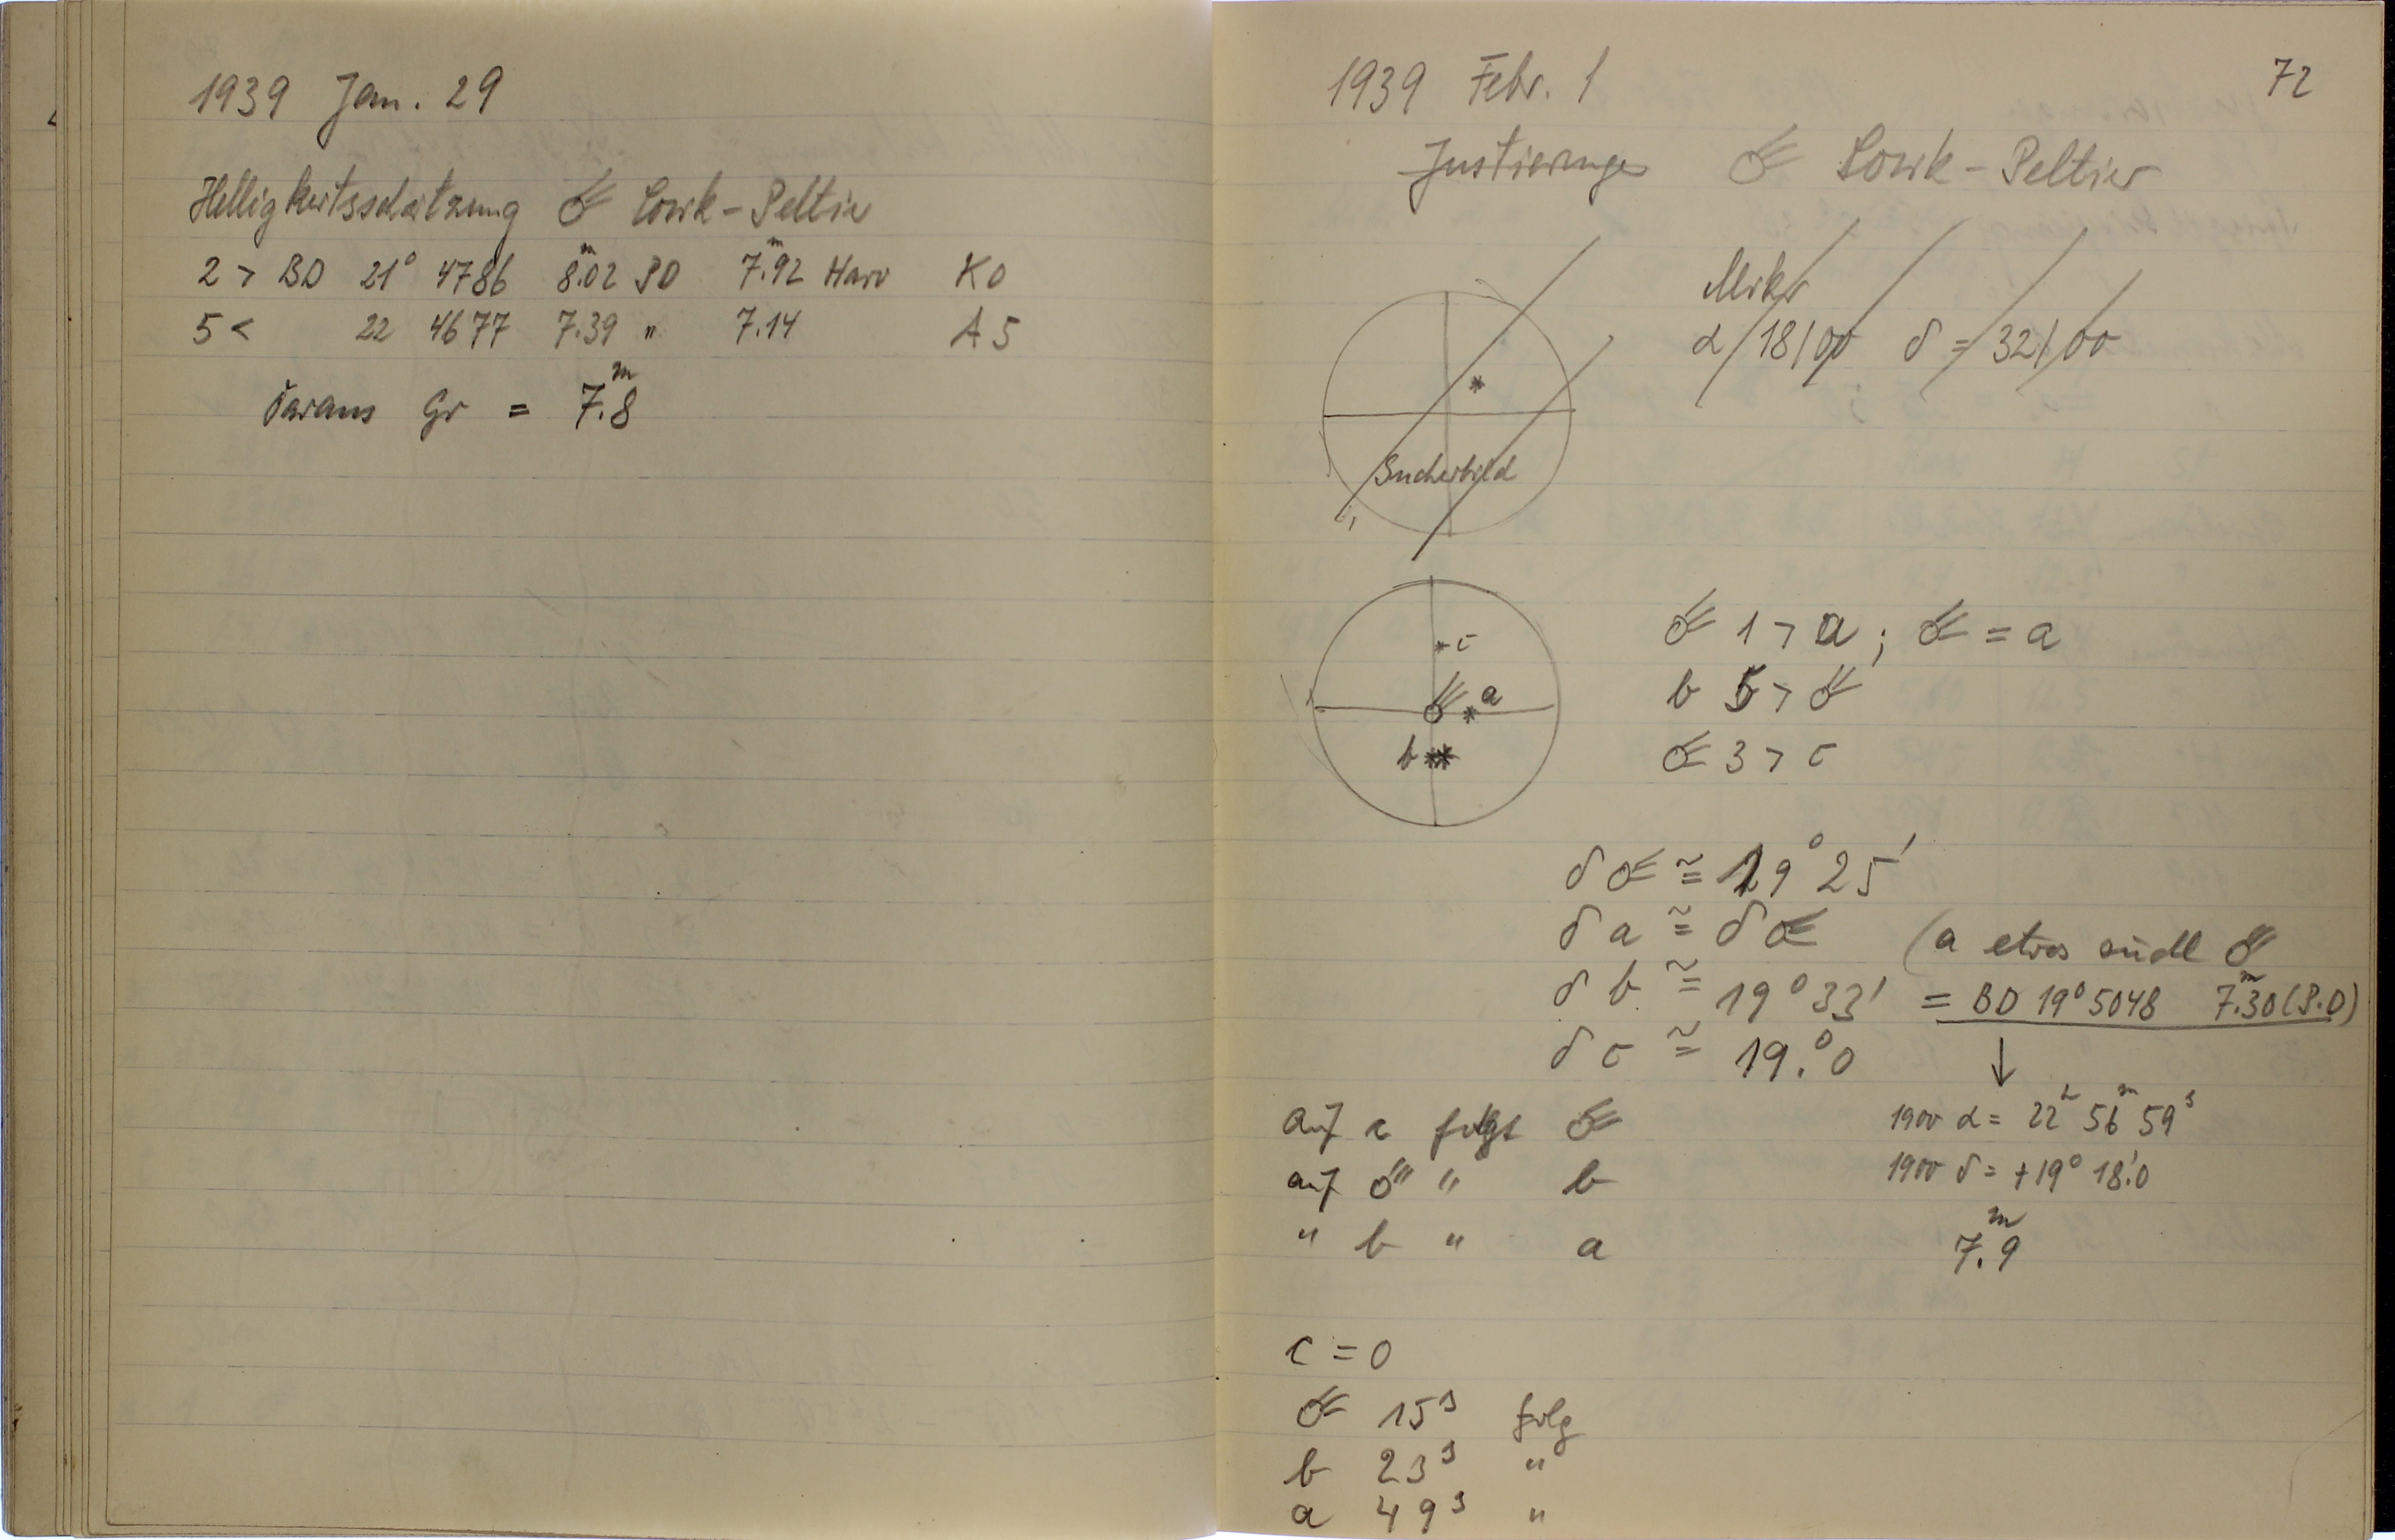 1939 Jan. 29
Helligkeitsschätzung ☄ Cosik-Peltier
2 > BD 21° 4786 8.02ᵐ PD 7.92ᵐ Harv K0
5 < 22 4677 7.39 " 7.14 A5
Daraus Gr = 7.8ᵐ
72
1939 Febr. 1
Justierung ☄ Cosik-Peltier
Mikr
α 18/00 δ = 32/00
Sucherbild
c
a
b
☄ 1 > a ; ☄ = a
b 5 > ☄
☄ 3 > c
δ ☄ ≅ 19° 25'
δ a ≅ δ ☄ (a etwas südl ☄
δ b ≅ 19° 33' = BD 19° 5048 7.30ᵐ (P.D)
δ c ≅ 19.°0
↓
Auf c folgt ☄ 1900 α = 22ʰ 56ᵐ 59ˢ
auf ☄ " b 1900 δ = +19° 18.'0
" b " a 7.9ᵐ
c = 0
☄ 15ˢ folg
b 23ˢ "
a 49ˢ "